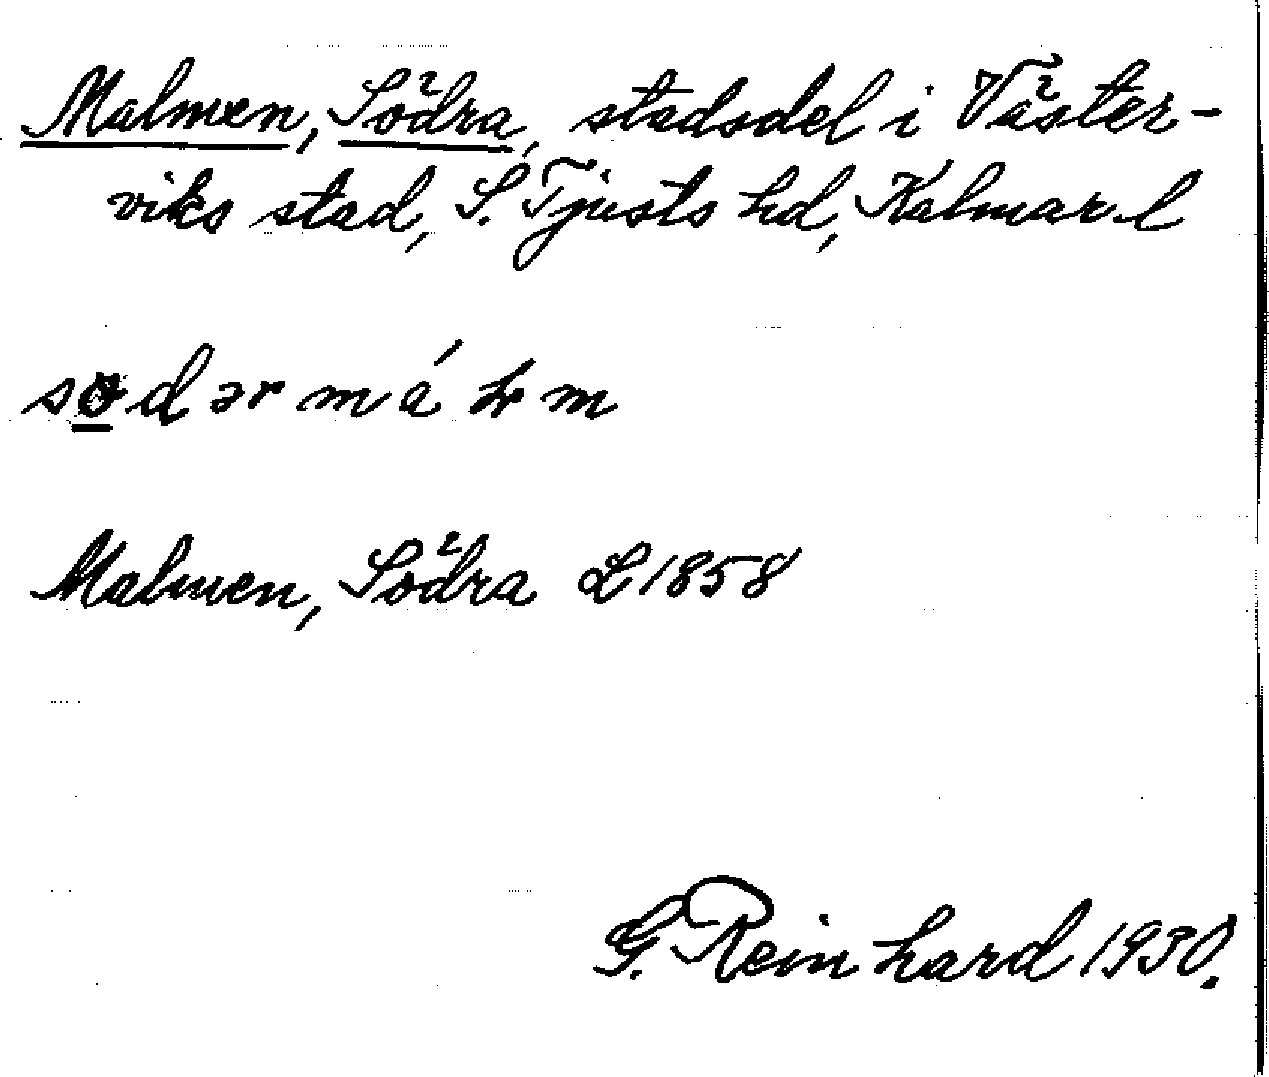 Malmen, Södra, stadsdel i Väster-
viks stad, S. Tjusts hd, Kalmar l
sødər má łm
Malmen, Södra L 1858
G. Reinhard 1930.